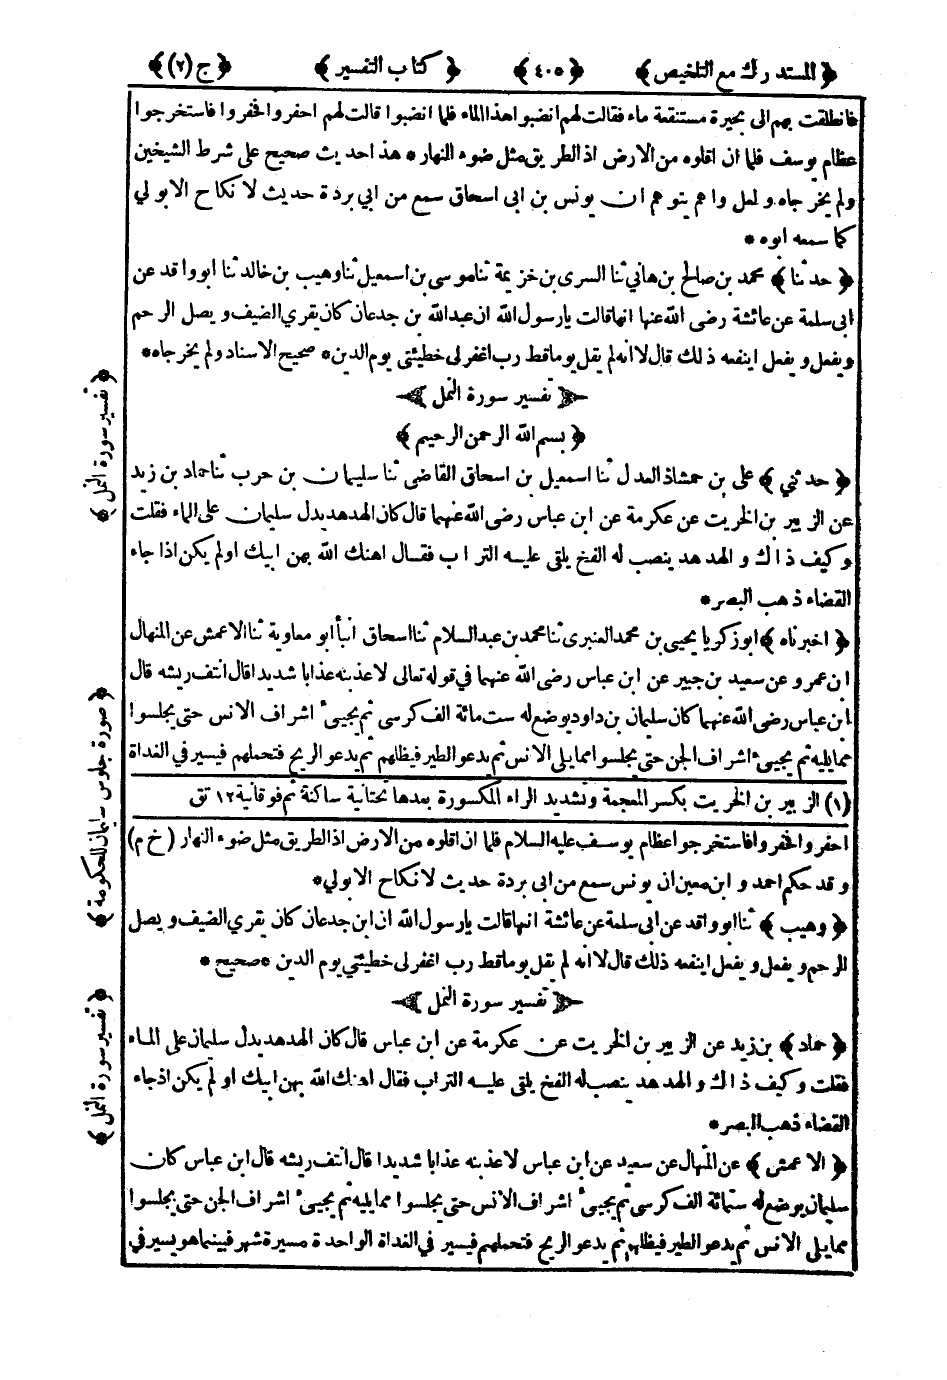 ﴿ المستدرك مع التلخيص ﴾ ﴿ ٤٠٥ ﴾ ﴿ كتاب التفسير ﴾ ﴿ ج (٢) ﴾
فانطلقت بهم الى بحيرة مستنقعة ماء فقالت لهم انضبوا هذا الماء فلما انضبوا قالت لهم احفروا فحفروا فاستخرجوا
عظام يوسف فلما ان اقلوه من الارض اذ الطريق مثل ضوء النهار * هذا حديث صحيح على شرط الشيخين
ولم يخرجاه ولعل واهم يتوهم ان يونس بن ابى اسحاق سمع من ابي بردة حديث لا نكاح الا بولي
كما سمعه ابوه *
﴿ حدثنا ﴾ محمد بن صالح بن هاني ثنا السرى بن خزيمة ثنا موسى بن اسمعيل ثنا وهيب بن خالد ثنا ابو واقد عن
ابى سلمة عن عائشة رضى الله عنها انها قالت يا رسول الله ان عبد الله بن جدعان كان يقري الضيف ويصل الرحم
ويفعل ويفعل اينفعه ذلك قال لا انه لم يقل يوما قط رب اغفر لى خطيئتى يوم الدين * صحيح الاسناد ولم يخرجاه *
﴿ تفسير سورة النمل ﴾
﴿ بسم الله الرحمن الرحيم ﴾
﴿ حدثني ﴾ على بن حمشاذ العدل ثنا اسمعيل بن اسحاق القاضى ثنا سليمان بن حرب ثنا حماد بن زيد
عن الزبير بن الخريت عن عكرمة عن ابن عباس رضى الله عنهما قال كان الهدهد يدل سليمان على الماء فقلت
وكيف ذاك والهدهد ينصب له الفخ يلقى عليه التراب فقال اهنك الله بهن ابيك اولم يكن اذا جاء
القضاء ذهب البصر *
﴿ اخبرناه ﴾ ابو زكريا يحيى بن محمد العنبرى ثنا محمد بن عبد السلام ثنا اسحاق انبأ ابو معاوية ثنا الاعمش عن المنهال
ابن عمرو عن سعيد بن جبير عن ابن عباس رضى الله عنهما في قوله تعالى لاعذبنه عذابا شديدا قال انتف ريشه قال
ابن عباس رضى الله عنهما كان سليمان بن داود يوضع له ست مائة الف كرسى ثم يجيئ اشراف الانس حتى يجلسوا
مما يليه ثم يجيئ اشراف الجن حتى يجلسوا مما يلى الانس ثم يدعو الطير فيظلهم ثم يدعو الريح فتحملهم فيسير في الغداة
(١) الزبير بن الخريت بكسر المعجمة وتشديد الراء المكسورة بعدها تحتانية ساكنة ثم فوقانية ١٢ تق
احفروا فحفروا فاستخرجوا عظام يوسف عليه السلام فلما ان اقلوه من الارض اذ الطريق مثل ضوء النهار (خ م)
وقد حكم احمد وابن معين ان يونس سمع من ابى بردة حديث لا نكاح الا بولي *
﴿ وهيب ﴾ ثنا ابو واقد عن ابى سلمة عن عائشة انها قالت يا رسول الله ان ابن جدعان كان يقري الضيف ويصل
الرحم ويفعل ويفعل اينفعه ذلك قال لا انه لم يقل يوما قط رب اغفر لى خطيئتي يوم الدين * صحيح *
﴿ تفسير سورة النمل ﴾
﴿ حماد ﴾ بن زيد عن الزبير بن الخريت عن عكرمة عن ابن عباس قال كان الهدهد يدل سليمان على الماء
فقلت وكيف ذاك والهدهد ينصب له الفخ يلقى عليه التراب فقال اهنك الله بهن ابيك او لم يكن اذ جاء
القضاء ذهب البصر *
﴿ الاعمش ﴾ عن المنهال عن سعيد عن ابن عباس لاعذبنه عذابا شديدا قال انتف ريشه قال ابن عباس كان
سليمان يوضع له ستمائة الف كرسى ثم يجيئ اشراف الانس حتى يجلسوا مما يليه ثم يجيئ اشراف الجن حتى يجلسوا
مما يلى الانس ثم يدعو الطير فيظلهم ثم يدعو الريح فتحملهم فيسير في الغداة الواحدة مسيرة شهر فبينما هو يسير في
﴿ تفسير سورة النمل ﴾
﴿ صورة جلوس سليمان للحكومة ﴾
﴿ تفسير سورة النمل ﴾